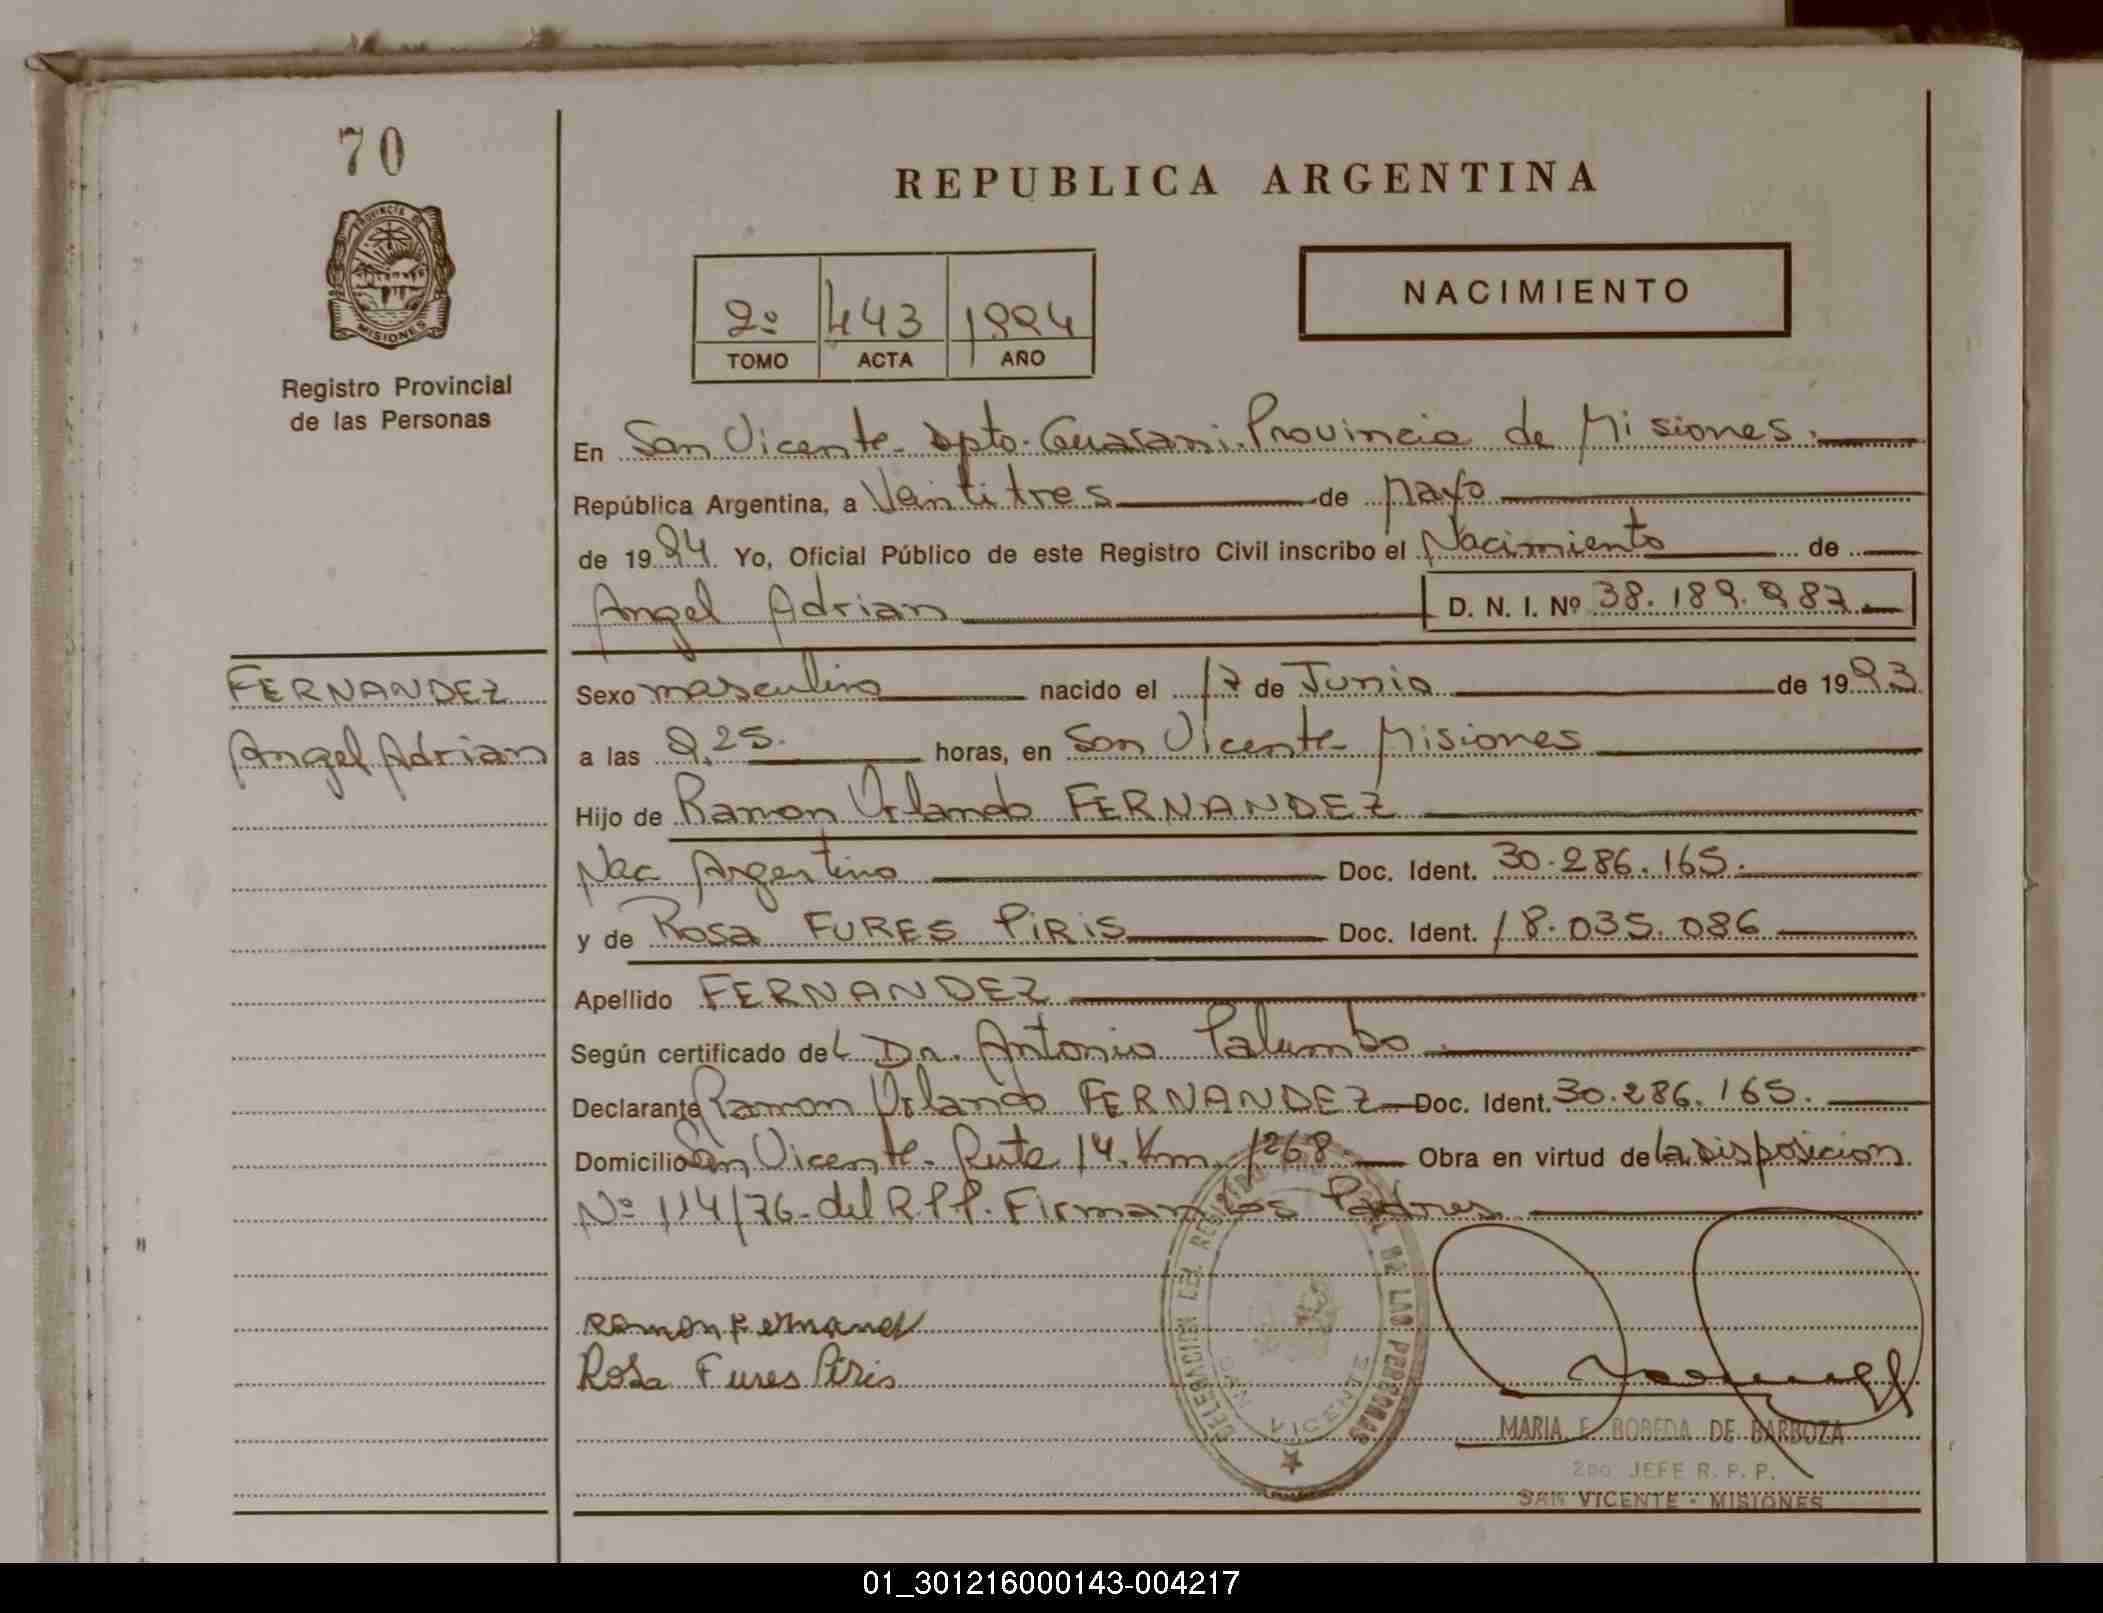 70
REPUBLICA ARGENTINA
PROVINCIA DE
MISIONES
NACIMIENTO
2º 443 1994
TOMO ACTA AÑO
Registro Provincial
de las Personas
En San Vicente - Dpto. Guarani. Provincia de Misiones.
República Argentina, a Veintitres de Mayo
de 1994 Yo, Oficial Público de este Registro Civil inscribo el Nacimiento de
Angel Adrian D. N. I. Nº 38.189.987
FERNANDEZ
Angel Adrian
Sexo masculino nacido el 17 de Junio de 1993
a las 9,25. horas, en San Vicente - Misiones
Hijo de Ramon Orlando FERNANDEZ
Nac Argentino Doc. Ident. 30.286.165.
y de Rosa FURES PIRIS Doc. Ident. 18.035.086
Apellido FERNANDEZ
Según certificado del Dr. Antonio Palumbo
Declarante Ramon Orlando FERNANDEZ Doc. Ident. 30.286.165.
Domicilio San Vicente - Ruta 14. Km. 1268 Obra en virtud de la disposicion
Nº 114/76 - del R.P.P. Firman los Padres
Ramon Fernand
Rosa Fures Piris
DELEGACION DEL REGISTRO DE LAS PERSONAS
SAN VICENTE
MARIA E. BOBEDA DE BARBOZA
2do JEFE R. P. P.
SAN VICENTE - MISIONES
01_301216000143-004217